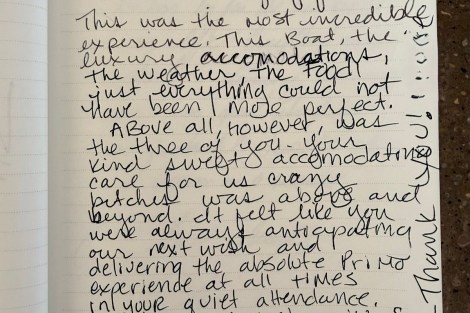 This was the most incredible
experience. This Boat, the
luxury accomodations,
the weather the food
just everything could not
have been more perfect.
Above all, however, was
the three of you. your
kind sweet accomodating
care for us crazy
bitches was above and
beyond. It felt like you
were always anticipating
our next wish and
delivering the absolute Primo
experience at all times
in your quiet attendance.
Thank you!!